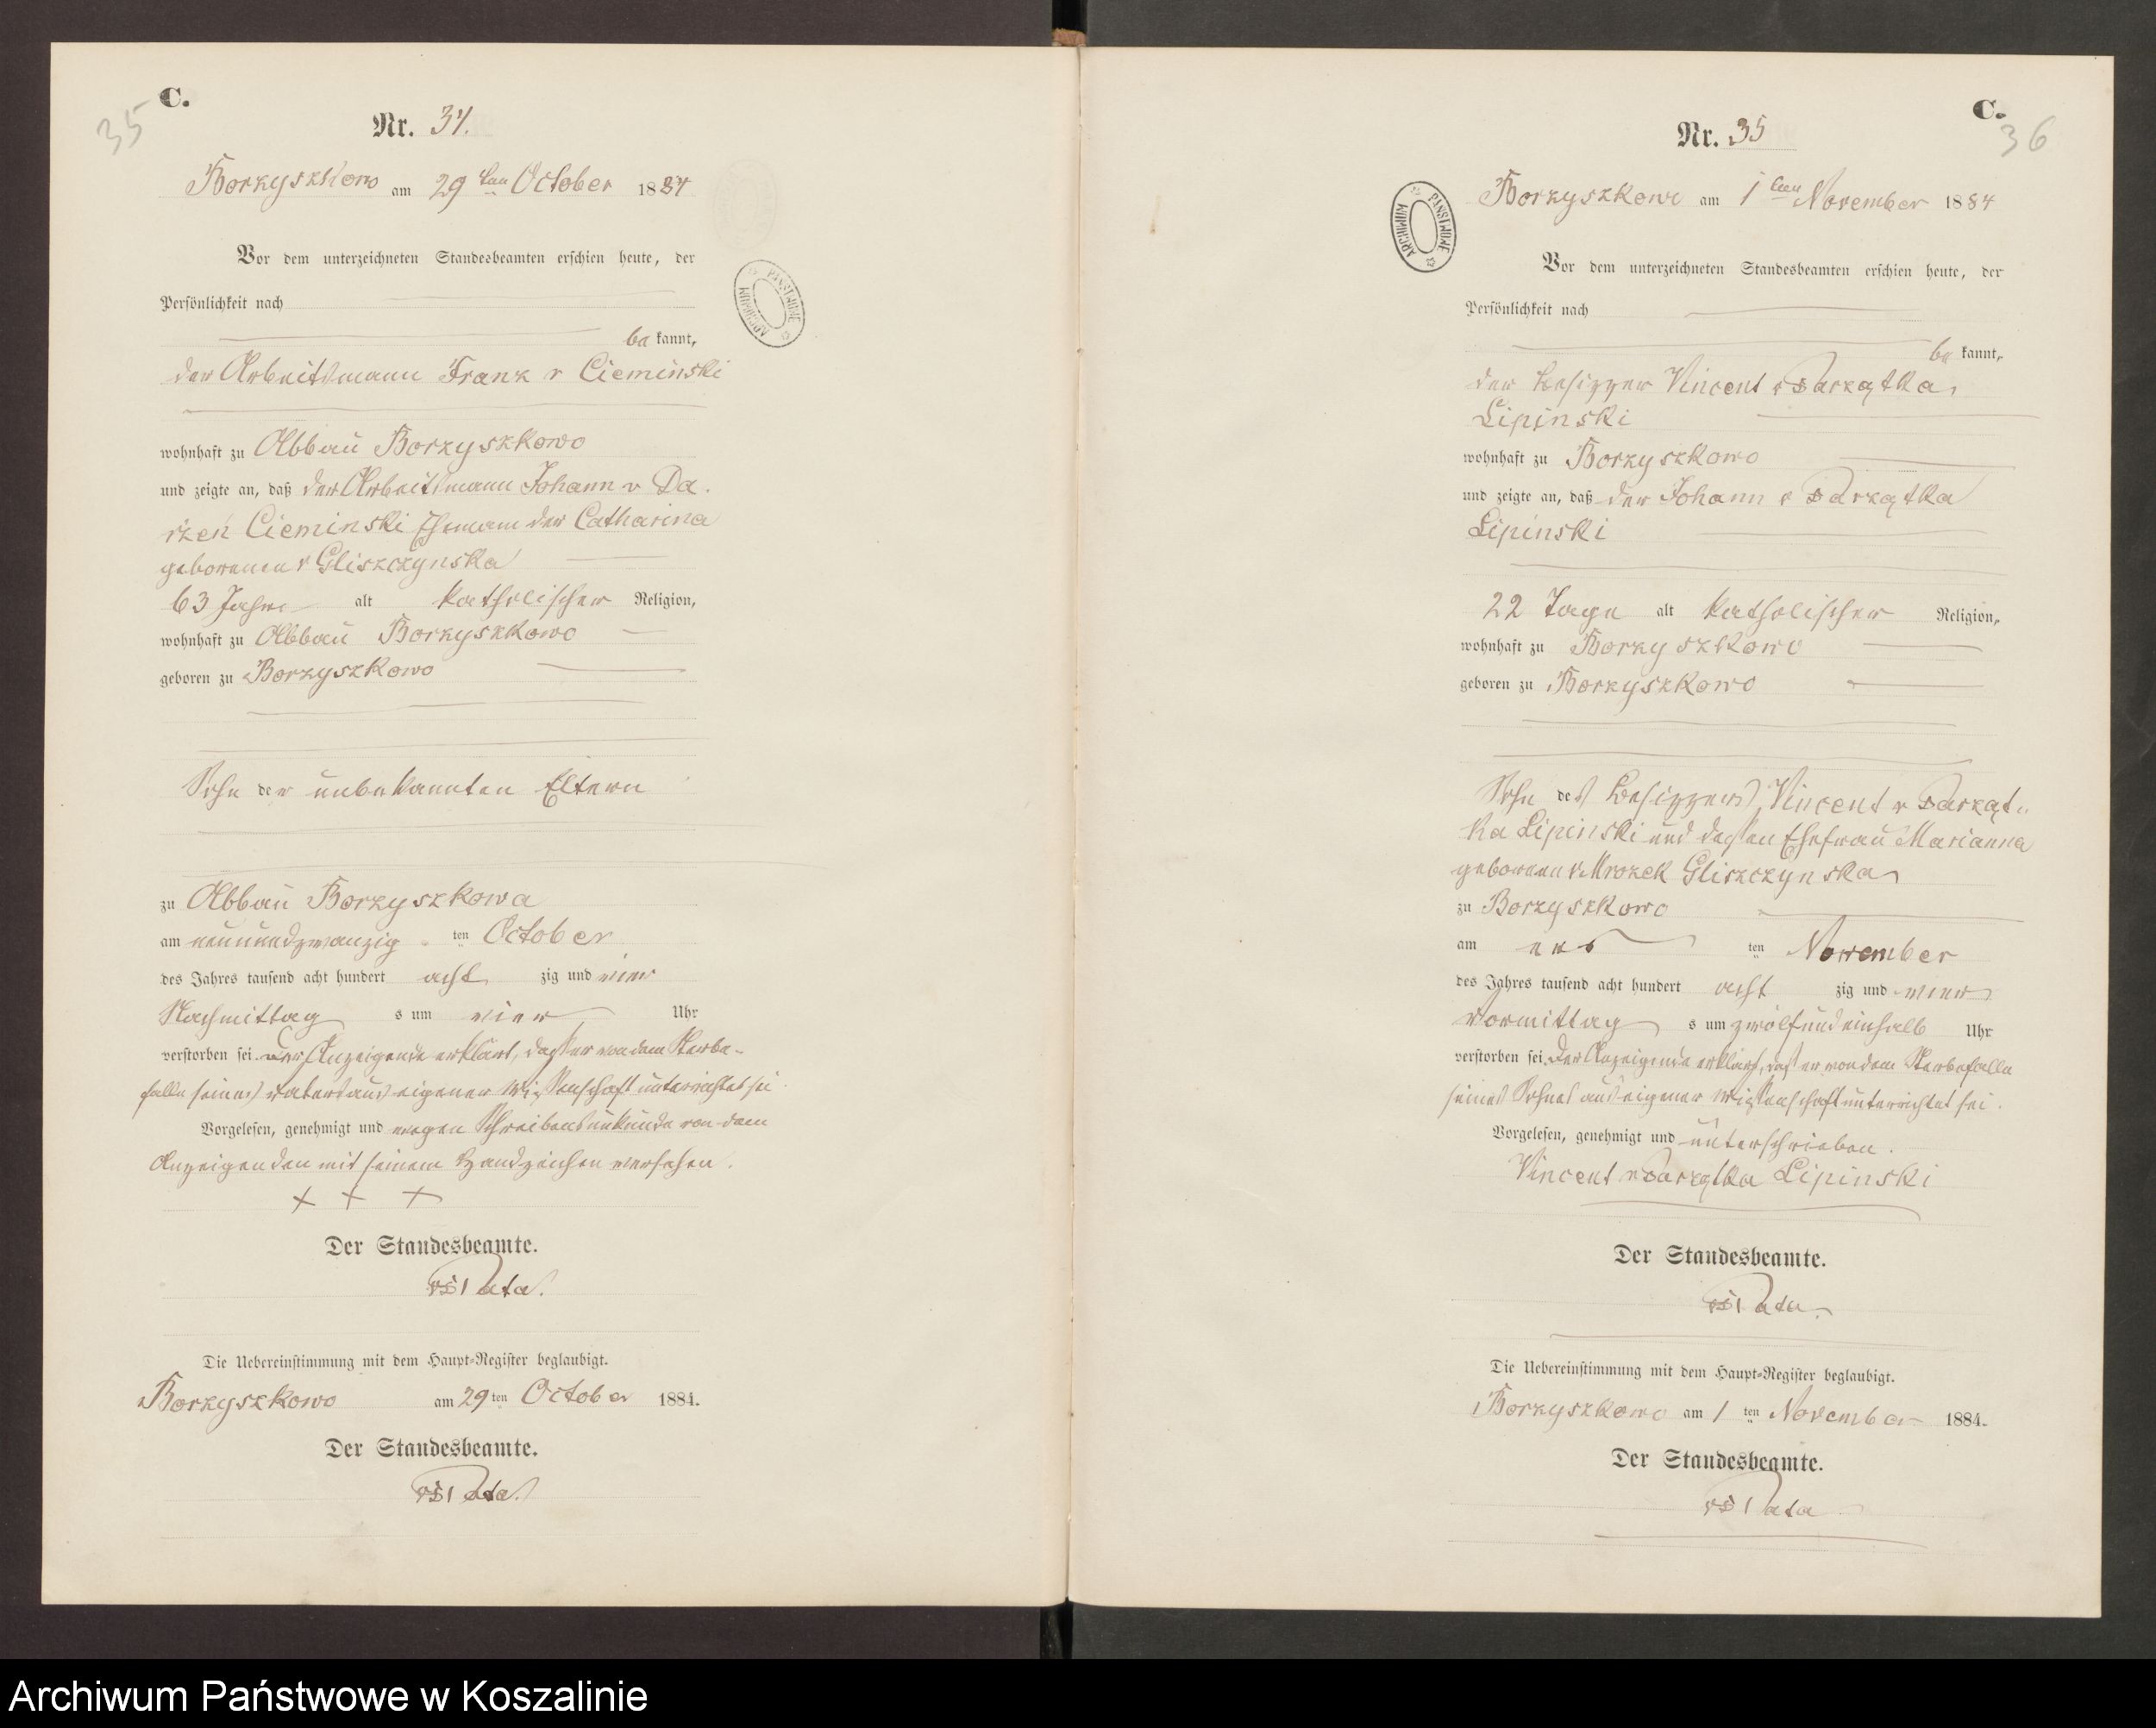 C.
35
Nr. 34.
Borzyszkowo am 29 ten October 1884
Vor dem unterzeichneten Standesbeamten erschien heute, der
Persönlichkeit nach
be kannt,
der Arbeitsmann Franz v Cieminski
wohnhaft zu Abbau Borzyszkowo
und zeigte an, daß der Arbeitsmann Johann v Da-
rzen Cieminski Ehemann der Catharina
geborenen v Gliszczynska
63 Jahre alt katholischer Religion,
wohnhaft zu Abbau Borzyszkowo
geboren zu Borzyszkowo
Sohn der unbekannten Eltern
zu Abbau Borzyszkowa
am neunundzwanzig ten October
des Jahres tausend acht hundert acht zig und vier
Nachmittag s um vier Uhr
verstorben sei. Der Anzeigende erklärt, dass er von dem Sterbe-
falle seines Vaters aus eigener Wissenschaft unterrichtet sei.
Vorgelesen, genehmigt und wegen Schreibensunkunde von dem
Anzeigenden mit seinem Handzeichen versehen.
+ + +
Der Standesbeamte.
Die Uebereinstimmung mit dem Haupt-Register beglaubigt.
Borzyszkowo am 29 ten October 1884.
Der Standesbeamte.
C.
36
Nr. 35
Borzyszkowo am 1 ten November 1884
ARCHIWUM PAŃSTWOWE
Vor dem unterzeichneten Standesbeamten erschien heute, der
Persönlichkeit nach
be kannt,
der Besitzer Vincent v
Lipinski
wohnhaft zu Borzyszkowo
und zeigte an, daß der Johann v
Lipinski
22 Tage alt katholischer Religion,
wohnhaft zu Borzyszkowo
geboren zu Borzyszkowo
Sohn des Besitzers Vincent v
ka Lipinski und dessen Ehefrau Marianna
geborene v Mrozek Gliszczynska
zu Borzyszkowo
am ers ten November
des Jahres tausend acht hundert acht zig und vier
Vormittag s um zwölfundeinhalb Uhr
verstorben sei. Der Anzeigende erklärt, dass er von dem Sterbefalle
seines Sohnes aus eigener Wissenschaft unterrichtet sei.
Vorgelesen, genehmigt und unterschrieben.
Vincent v Lipinski
Der Standesbeamte.
Die Uebereinstimmung mit dem Haupt-Register beglaubigt.
Borzyszkowo am 1 ten November 1884.
Der Standesbeamte.
Archiwum Państwowe w Koszalinie